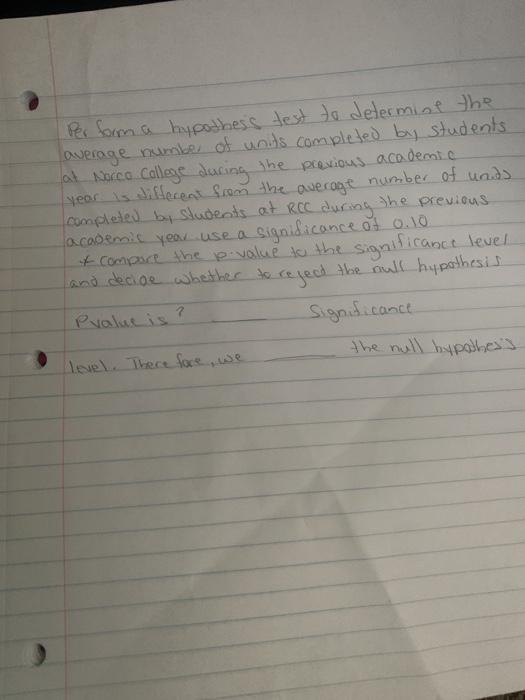 Perform a hypothesis test to determine the
average number of units completed by students
at Norco College during the previous academic
year is different from the average number of units
completed by students at RCC during the previous
academic year use a significance of 0.10
* compare the p-value to the significance level
and decide whether to reject the null hypothesis
Pvalue is? ____ Significance
level. Therefore, we ____ the null hypothesis